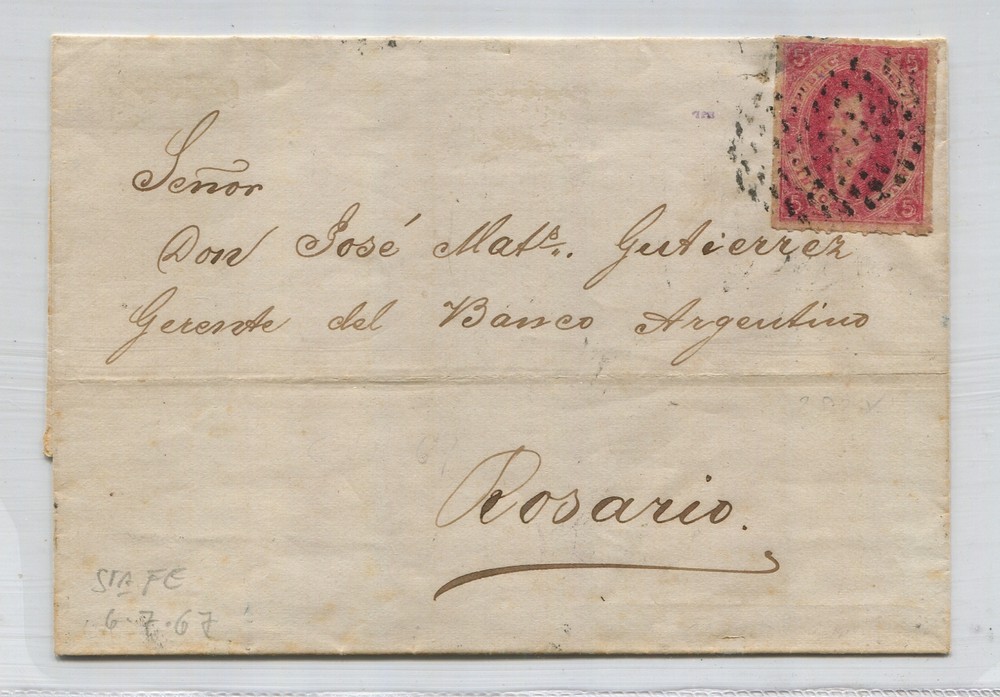 Señor
Don José Mats. Gutierrez
Gerente del Banco Argentino
Rosario.
STA FE
6-7-67
5 5
5 5